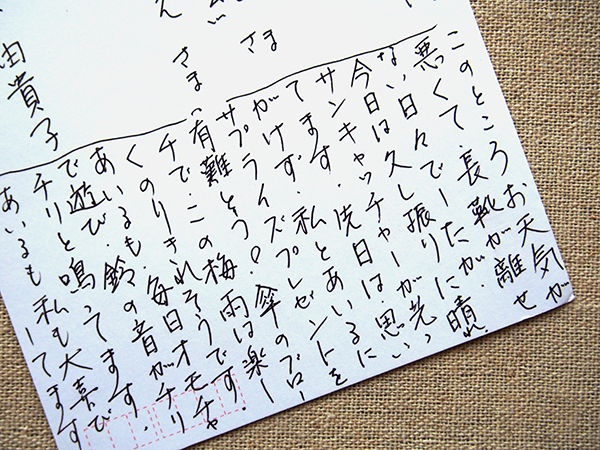 さま
さま
え
由貴子
このところお天気が
悪くて、長靴が離せ
ない日々でしたが
今日は久し振りに晴れ
サンキャッチャーが光っ
てます。先日は思い
がけず、私とあいるに
サプライズプレゼントを
有難とう!傘のブロー
チで、この梅雨は楽し
くのりきれそうです。
あいるも毎日オモチャ
で遊び、鈴の音がチリ
チリと鳴ってます。
あいるも私も大喜び
してます